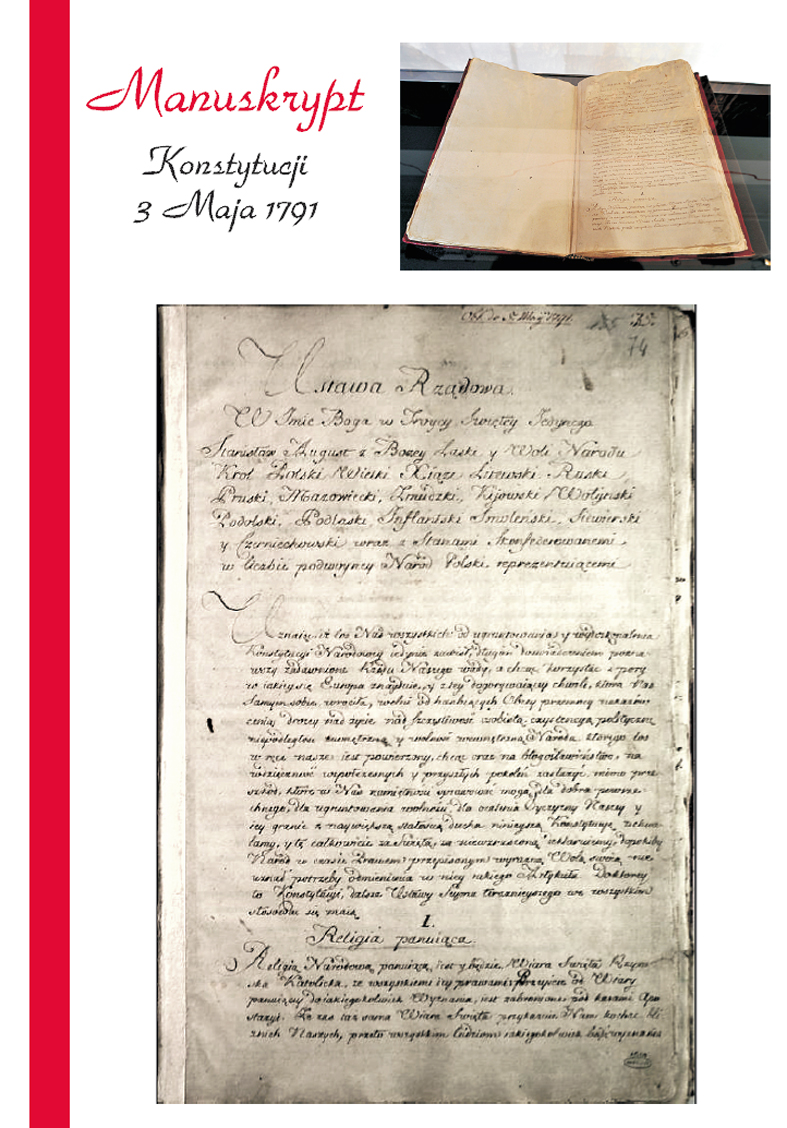 Manuskrypt
Konstytucji
3 Maja 1791
74
Ustawa Rządowa.
W Imie Boga w Troycy Swiętey Jedynego
Stanisław August z Bozey Łaski y Woli Narodu
Krol Polski, Wielki Xiąze Litewski, Ruski
Pruski, Mazowiecki, Zmudzki, Kijowski Wołynski
Podolski, Podlaski, Inflantski Smoleński, Siewierski
y Czerniechowski wraz z Stanami skonfederowanemi
w liczbie podwoyney Naród Polski reprezentuiącemi
Uznaiąc, iż los Nas wszystkich od ugruntowania y wydoskonalenia
Konstytucyi Narodowey iedynie zawisł, długim doswiadczeniem pozna-
wszy zadawnione Rządu Naszego wady, a chcąc korzystac z pory
w iakiey się Europa znayduie, y z tey dogorywaiącey chwili, ktora Nas
Samym sobie wrociła, wolni od hanbiących Obcey przemocy nakazow
ceniąc drozey nad zycie nad szczęsliwosc osobistą exystencyą polityczną
niepodległosc zewnętrzną y wolnosc wewnętrzną Narodu, ktorego los
w ręce nasze iest powierzony, chcąc oraz na błogosławieństwo, na
wdzięcznosc wspołczesnych y przyszłych pokolen zasłuzyc, mimo prze-
szkod, ktore w Nas namiętnosci sprawowac mogą, dla dobra powsze-
chnego, dla ugruntowania wolnosci, dla ocalenia Oyczyzny Naszey y
iey granic z naywiększą stałoscią ducha ninieyszą Konstytucyę uchwa-
lamy, y tę całkowicie za Swiętą, za niewzruszoną deklaruiemy, dopokiby
Narod w czasie Prawem przepisanym wyrazną Wolą swoią nie
uznał potrzeby odmienienia w niey iakiego Artykułu. Do ktorey
to Konstytucyi, dalsze Ustawy Seymu teraznieyszego we wszystkim
stosowac się maią
I.
Religia panuiąca.
Religią Narodową panuiącą, iest y będzie Wiara Swięta Rzym-
ska Katolicka, ze wszystkiemi iey prawami. Przeyscie od Wiary
panuiącey do iakiegokolwiek Wyznania, iest zabronione pod karami Apo-
stazyi. Ze zas taz sama Wiara Swięta przykazuie Nam kochac bli-
znich Naszych, przeto wszystkim ludziom iakiegokolwiek bądz wyznania